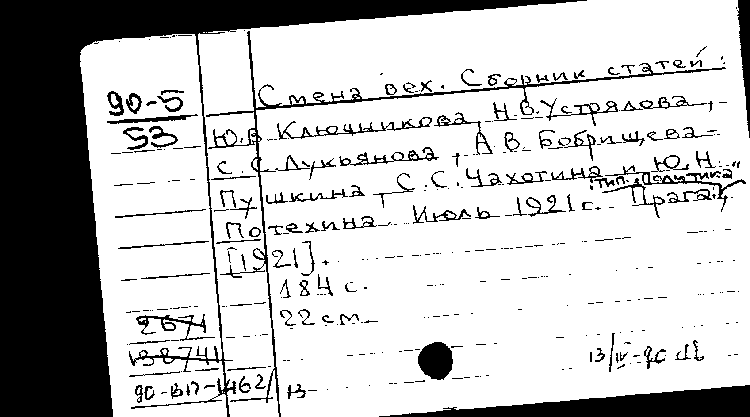 90-5
53
Смена вех. Сборник статей:
Ю.В. Ключникова, Н.В. Устрялова,
С.С. Лукьянова, А.В. Бобрищева-
Пушкина, С.С. Чахотина и Ю.Н.
Потехина. Июль 1921 г. Прага,
: тип. „Политика"
[1921].
184 с.
22 см.
2671
138741
90-1317-1462/13
13/IV-90